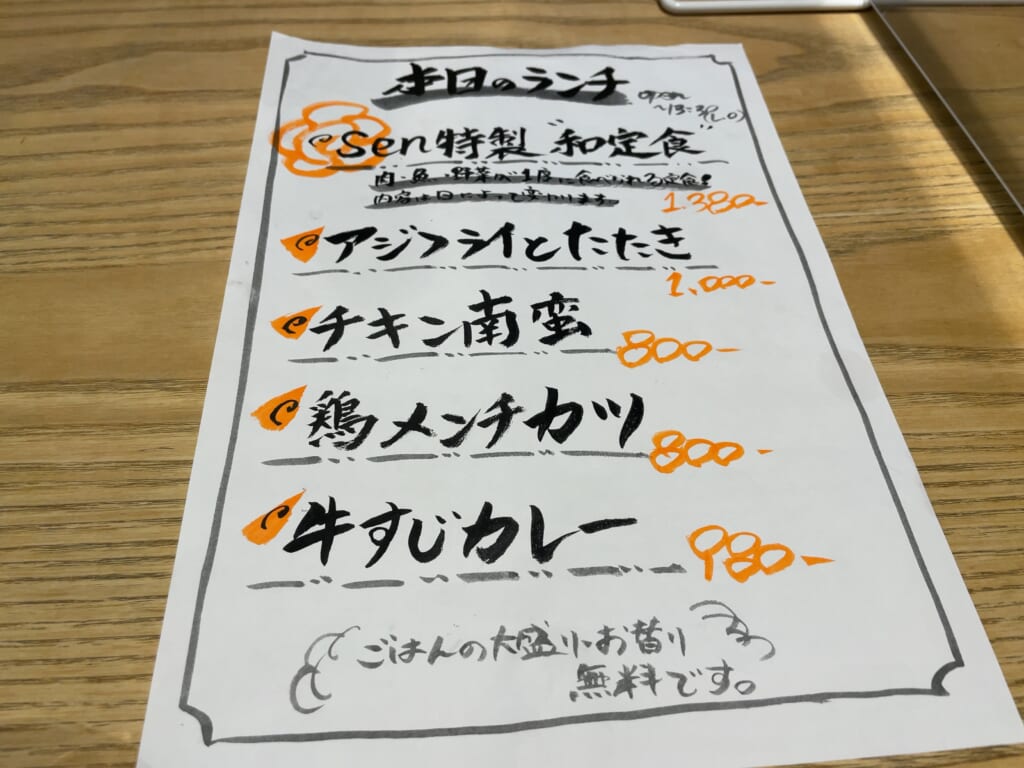 本日のランチ
open
~13:30(L.O)
Sen特製"和定食"
肉・魚・野菜が1度に食べられる定食!
内容は日によって変わります
1,380-
アジフライとたたき
1,000-
チキン南蛮
800-
鶏メンチカツ
800-
牛すじカレー
980-
ごはんの大盛り・お替り
無料です。